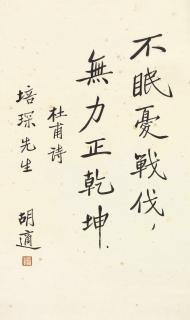 不眠憂戰伐，
無力正乾坤．
杜甫詩
培琛先生
胡適